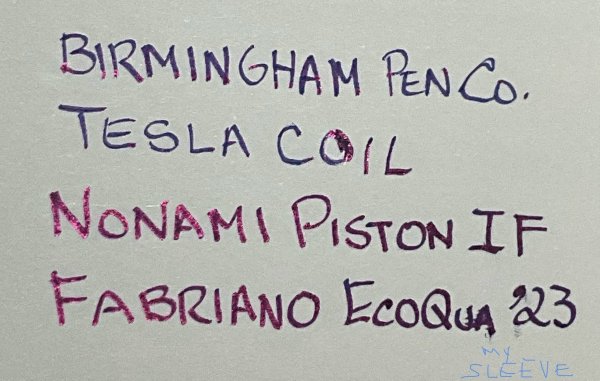 BIRMINGHAM PEN CO.
TESLA COIL
NONAMI PISTON IF
FABRIANO ECOQUA '23
MY
SLEEVE